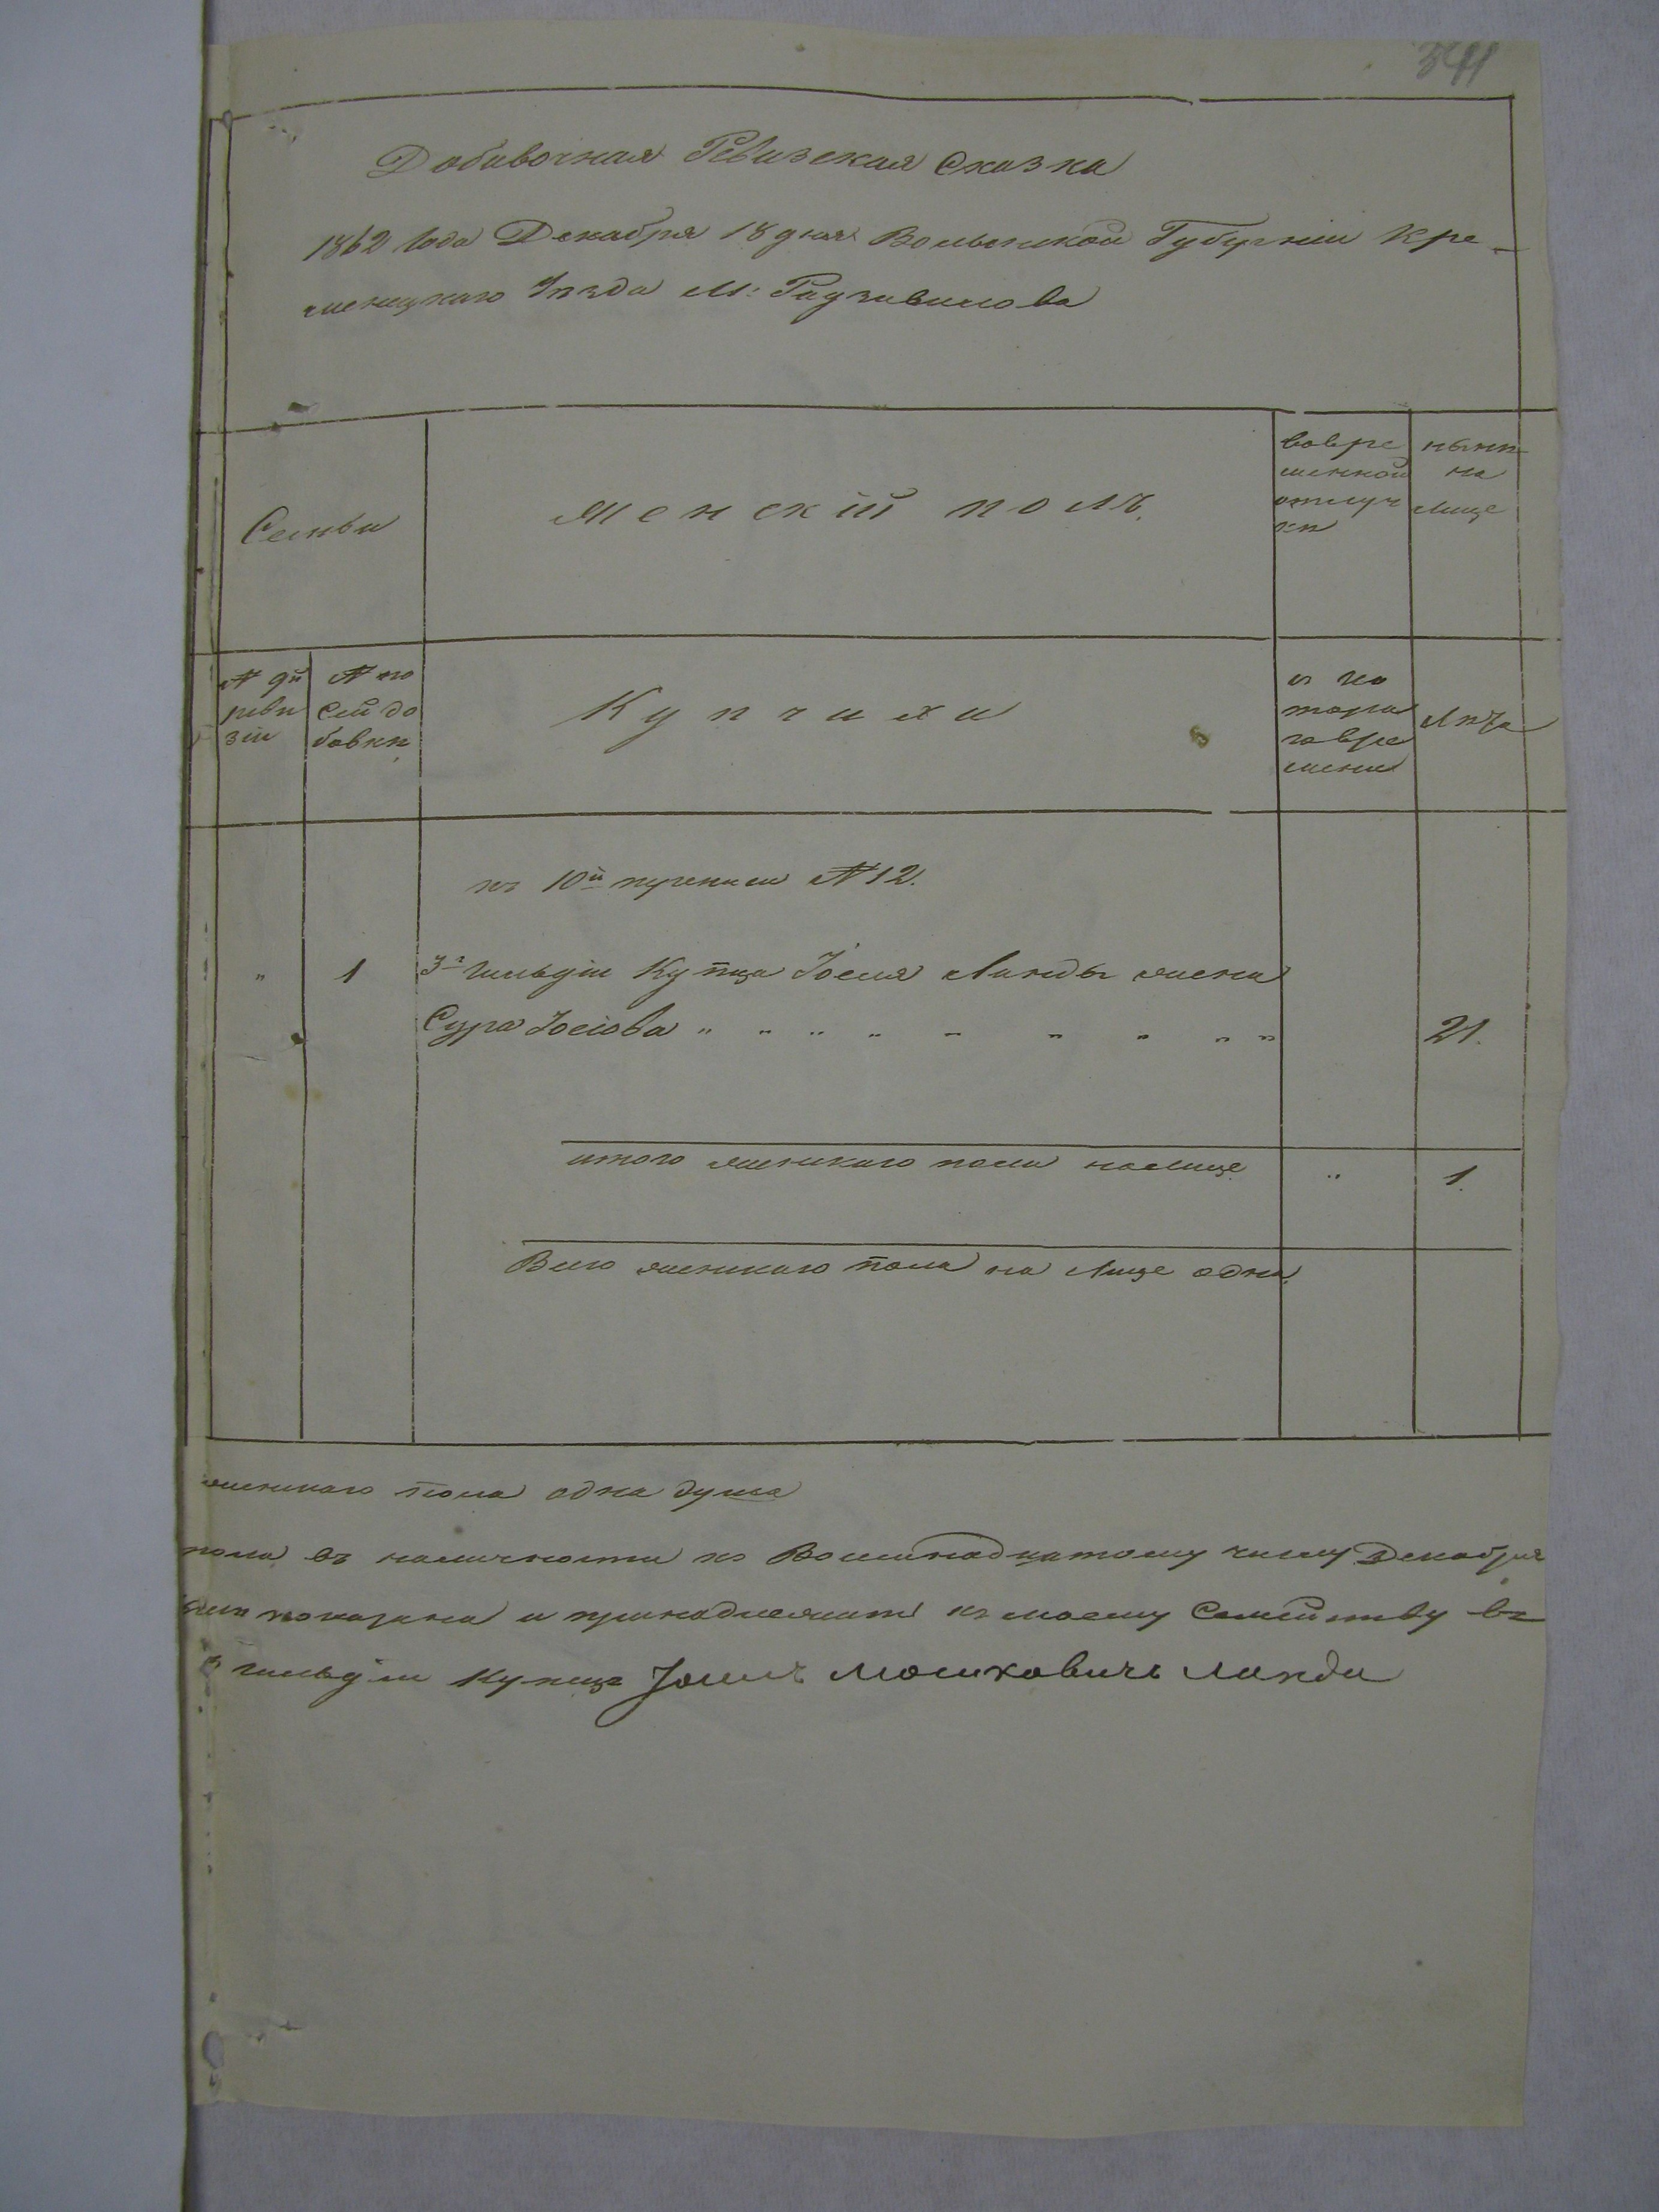 341
Добавочная Ревизская Сказка
1862 Года Декабря 18 дня Волынской Губерніи Кре-
менецкаго Уѣзда М: Радзивилова
Семьи
Женскій полъ.
вовре
менной
отлуч
кѣ
нынѣ
на
лице
№ 9й
реви
зіи
№ по
сей до
бавкѣ
Купчихи
съ ко
тора
го вре
мени
Лѣта
къ 10й ревизіи №12.
" 1 3й гильдіи Купца Іоселя Ланды жена
Сура Іосіова " " " " " " " " " 21.
итого женскаго пола налице " 1.
Всего женскаго пола на лице одна
женскаго пола одна душа
пола въ наличности по Восемнадцатому числу Декабря
показана и принадлежитъ къ моему Семейству въ
3 гильдіи Купецъ Іосель Мошковичъ Ланда